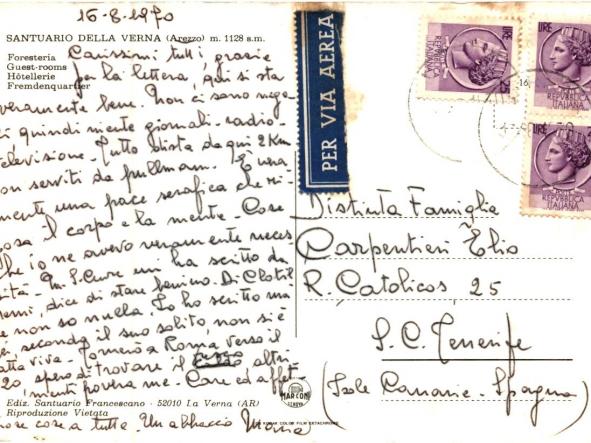 16-8-1970
SANTUARIO DELLA VERNA (Arezzo) m. 1128 s.m.
Foresteria
Guest-rooms
Hôtellerie
Fremdenquartier
Carissimi tutti, grazie
per la lettera, qui si sta
veramente bene. Non ci sono nego
zi quindi niente giornali-radio-
televisione. Tutto dista da qui 2 Km
non serviti da pullmann. E' vera
mente una pace serafica che ri-
posa il corpo e la mente. Cose
che io ne avevo veramente neces
sità. M. S. mi ha scritto da
dice di stare benino. Di Clotil
de non so nulla. Io ho scritto ma
lei secondo il suo solito, non si è
fatta viva. Tornerò a Roma verso il
20, spero di trovare il fresco altri-
menti povera me. Care ed affet-
tuose cose a tutti. Un abbraccio Maria
Ediz. Santuario Francescano - 52010 La Verna (AR)
Riproduzione Vietata
PER VIA AEREA
MARCONI
GENOVA
KODAK COLOR FILM EKTACHROME
LIRE
REPUBBLICA
ITALIANA
25
LIRE
REPUBBLICA
ITALIANA
LIRE
REPUBBLICA
ITALIANA
Distinta Famiglia
Carpentieri Elio
R. Catolicos 25
S. C. Tenerife
(Isole Canarie - Spagna)